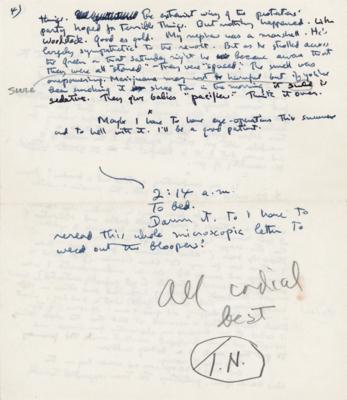 4)
things. The extremist wing of the protesters'
party hoped for terrible things. But nothing happened. Like
Woodstock. Good as gold. My nephew was a marshall. He's
largely sympathetic to the revolt. But as he strolled across
the Green on that Saturday night he became aware that
they were all "stoned" – they were "spaced." The smell was
overpowering. Marijuana may not be harmful but if you've
sure
been smoking it since ten in the morning it
sedative. They give babies "pacifiers." Think it over.
Maybe I have to have eye-operations this summer
and to hell with it. I'll be a good patient.
2:14 a.m.
To bed.
Damn it. Do I have to
reread this whole microscopic letter to
weed out the bloopers?
All cordial
best
T.N.